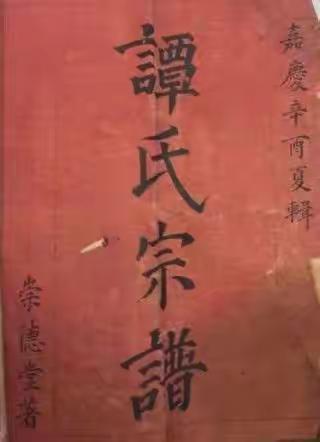 嘉慶辛酉夏輯
譚氏宗譜
崇德堂著